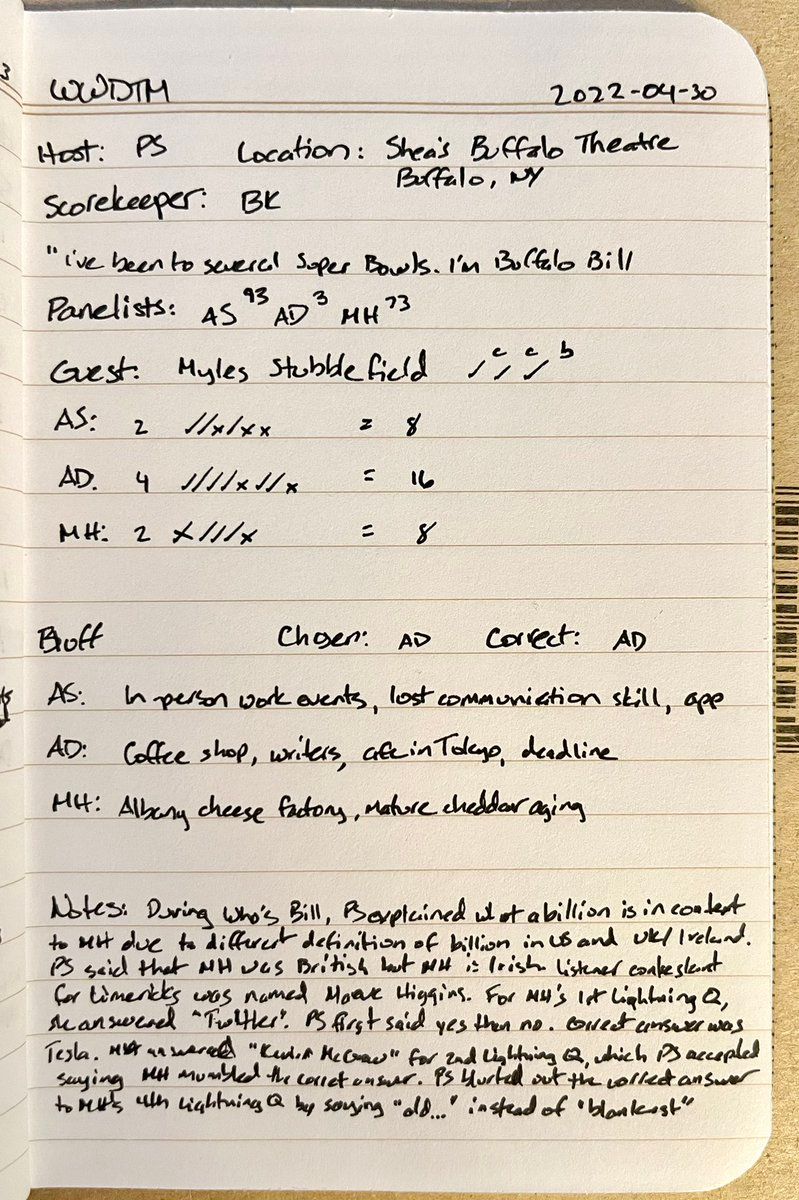 WWDTM 2022-04-30
Host: PS Location: Shea's Buffalo Theatre
Buffalo, NY
Scorekeeper: BK
"I've been to several Super Bowls. I'm Buffalo Bill
Panelists: AS 93 AD 3 MH 73
Guest: Myles Stubblefield ✓ c ✓ c ✓ b
AS: 2 //x/xx = 8
AD. 4 ////x//x = 16
MH: 2 x///x = 8
Bluff Chosen: AD Correct: AD
AS: In-person work events, lost communication skill, app
AD: Coffee shop, writers, cafe in Tokyo, deadline
MH: Albany cheese factory, mature cheddar aging
Notes: During Who's Bill, PS explained what a billion is in context
to MH due to different definition of billion in US and UK/Ireland.
PS said that MH was British but MH is Irish. Listener contestant
for Limericks was named Maeve Higgins. For MH's 1st Lightning Q,
she answered "Twitter". PS first said yes then no. Correct answer was
Tesla. MH answered "Kevin McCraw" for 2nd Lightning Q, which PS accepted
saying MH mumbled the correct answer. PS blurted out the correct answer
to MH's 4th Lightning Q by saying "old..." instead of "blankest"